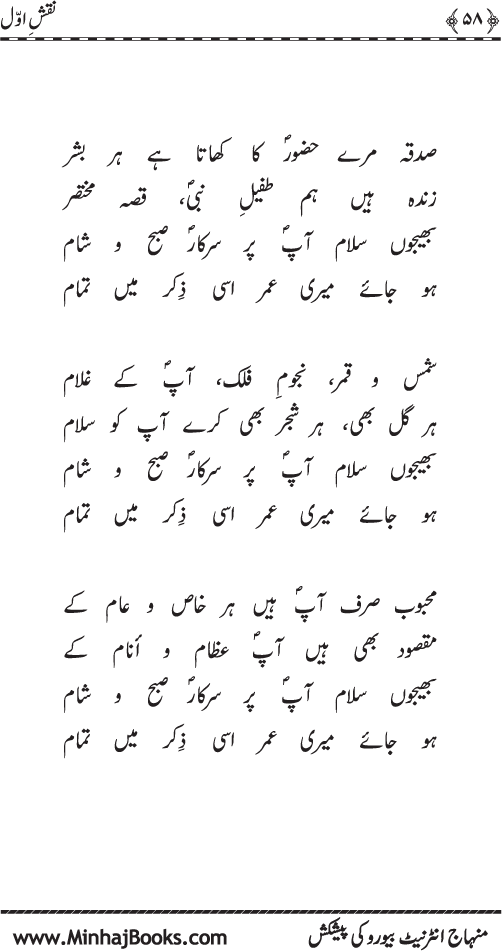 ﴿۵۸﴾ نقشِ اوّل
صدقہ مرے حضورؐ کا کھاتا ہے ہر بشر
زندہ ہیں ہم طفیلِ نبیؐ، قصہ مختصر
بھیجوں سلام آپؐ پر سرکارؐ صبح و شام
ہو جائے میری عمر اسی ذِکر میں تمام
شمس و قمر، نجومِ فلک، آپؐ کے غلام
ہر گل بھی، ہر شجر بھی کرے آپ کو سلام
بھیجوں سلام آپؐ پر سرکارؐ صبح و شام
ہو جائے میری عمر اسی ذِکر میں تمام
محبوب صرف آپؐ ہیں ہر خاص و عام کے
مقصود بھی ہیں آپؐ عظام و أنام کے
بھیجوں سلام آپؐ پر سرکارؐ صبح و شام
ہو جائے میری عمر اسی ذِکر میں تمام
منہاج انٹرنیٹ بیورو کی پیشکش www.MinhajBooks.com